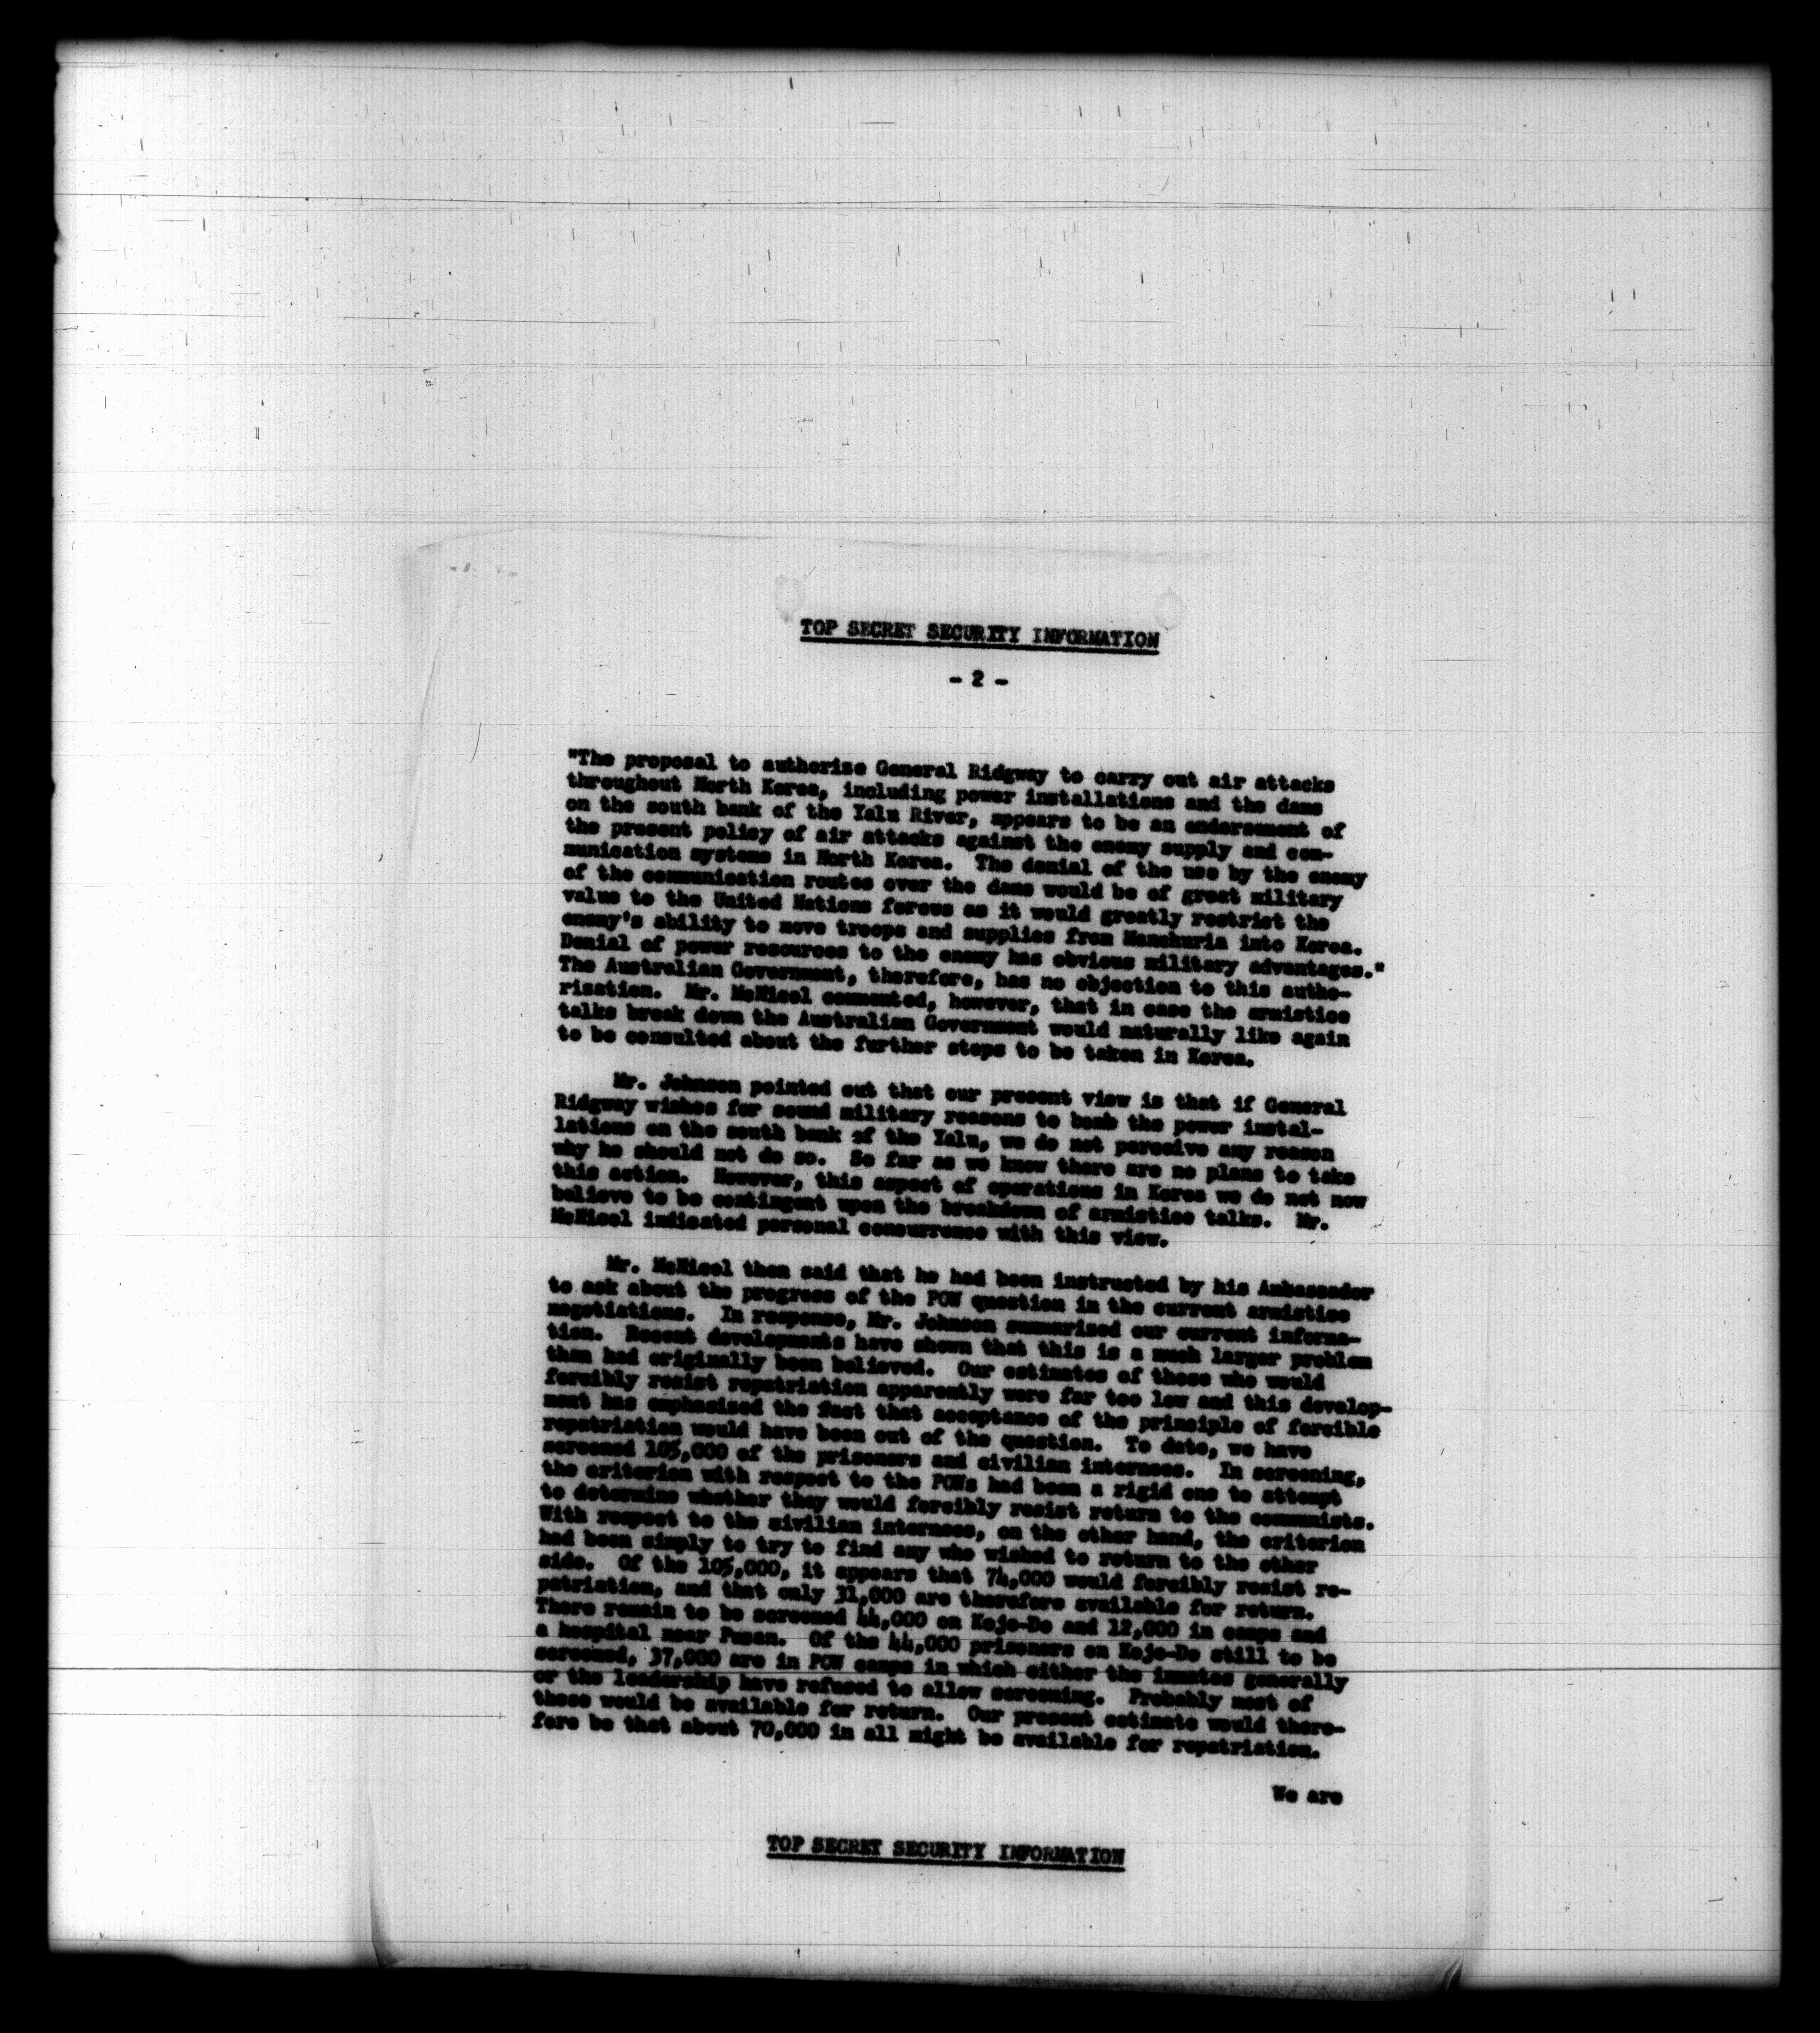 TOP SECRET SECURITY INFORMATION
- 2 -
"The proposal to authorize General Ridgway to carry out air attacks
throughout North Korea, including power installations and the dams
on the south bank of the Yalu River, appears to be an endorsement of
the present policy of air attacks against the enemy supply and com-
munication systems in North Korea. The denial of the use by the enemy
of the communication routes over the dams would be of great military
value to the United Nations forces as it would greatly restrict the
enemy's ability to move troops and supplies from Manchuria into Korea.
Denial of power resources to the enemy has obvious military advantages."
The Australian Government, therefore, has no objection to this autho-
rization. Mr. McNicol commented, however, that in case the armistice
talks break down the Australian Government would naturally like again
to be consulted about the further steps to be taken in Korea.
Mr. Johnson pointed out that our present view is that if General
Ridgway wishes for sound military reasons to bomb the power instal-
lations on the south bank of the Yalu, we do not perceive any reason
why he should not do so. So far as we know there are no plans to take
this action. However, this aspect of operations in Korea we do not now
believe to be contingent upon the breakdown of armistice talks. Mr.
McNicol indicated personal concurrence with this view.
Mr. McNicol then said that he had been instructed by his Ambassador
to ask about the progress of the POW question in the current armistice
negotiations. In response, Mr. Johnson summarized our current informa-
tion. Recent developments have shown that this is a much larger problem
than had originally been believed. Our estimates of those who would
forcibly resist repatriation apparently were far too low and this develop-
ment has emphasized the fact that acceptance of the principle of forcible
repatriation would have been out of the question. To date, we have
screened 105,000 of the prisoners and civilian internees. In screening,
the criterion with respect to the POWs had been a rigid one to attempt
to determine whether they would forcibly resist return to the communists.
With respect to the civilian internees, on the other hand, the criterion
had been simply to try to find any who wished to return to the other
side. Of the 105,000, it appears that 74,000 would forcibly resist re-
patriation, and that only 31,000 are therefore available for return.
There remain to be screened 44,000 on Koje-Do and 12,000 in camps and
a hospital near Pusan. Of the 44,000 prisoners on Koje-Do still to be
screened, 37,000 are in POW camps in which either the inmates generally
or the leadership have refused to allow screening. Probably most of
these would be available for return. Our present estimate would there-
fore be that about 70,000 in all might be available for repatriation.
We are
TOP SECRET SECURITY INFORMATION